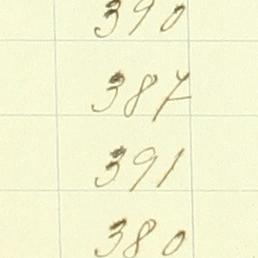 390
387
391
380